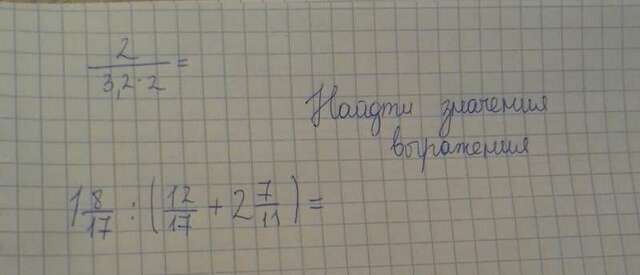 2/(3,2·2) =
Наидти значения
выражения
1 8/17 : (12/17 + 2 7/11) =